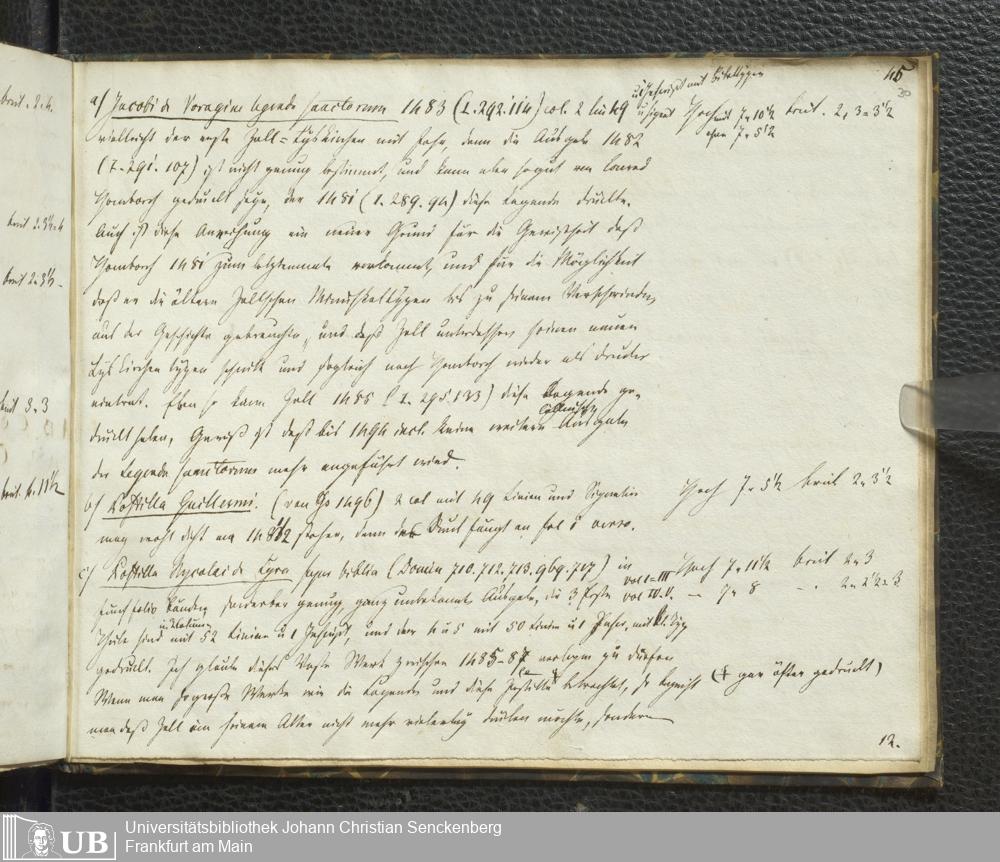 breit. 2 = 4.
breit 2 = 3½ = 4
breit 2 = 3½ –
breit 3 = 3
breit. 4. 11½
45
30
u Ueberschrift mit Bibeltypen
a/ Jacobi de Voragine legenda sanctorum 1483 (I. 292. 114) col. 2 lin 49 u signat Hoch mit 7 = 10½ breit . 2, 3 = 3½
ohne 7 = 5½
vielleicht der erste Zell = Lyskirchen mit Jahr, denn die Ausgabe 1482
(I. 291. 107) ist nicht genug bestimmt, und kann eben so gut von Conrad
Homborch gedruckt seyn, der 1481 (I. 289. 94) diese Legende druckte.
Auch ist diese ein neuer Grund für die Gewißheit daß
Homborch 1481 zum letztenmale vorkommt, und für die Möglichkeit
daß er die ältern Zellschen Minuskeltypen bis zu seinem Verschwinden,
aus der Geschichte gebrauchte, und daß Zell unterdessen seinen neuen
Lyskirchen typen schnitt und sogleich nach Homborch wieder als Drucker
eintrat. Eben so kann Zell 1485 (I. 295. 133) diese Legende ge-
druckt haben, Gewiß ist daß bis 1494 incl. keine weitere Cöllnische Ausgabe
der Legenda sanctorum mehr angeführt wird.
b/ Postilla Guillermi. (von Gs 1496) 2 col mit 49 Linien und Signatur Hoch 7 = 5½ breit 2 = 3½
mag wohl dicht an 1482 stehen, denn der Druck fängt an fol 1 verso.
c/ Postilla Nycolai de Lyra super biblia (Domin 710. 712. 713. 969. 717) in vol I = III Hoch 7 = 11½ breit 2 = 3
fünf folio Bänden, sonderbar genug ganz unbekannte Ausgabe, die 3 Erste vol IV. V. – 7 = 8 – . 2 = 2½ = 3
Theile sind mit 52 Linien u 1 Inschrift, und der 4 u 5 mit 50 Linien u 1
gedruckt. Ich glaube dieses Werk zwischen 1485 – 87 verlegen zu dürfen
Wenn man so große Werke wie die Legende und diese Postille betrachtet, so begreift (+ gar öfter gedruckt)
man daß Zell in seinem Alter nicht mehr vielerley drucken mochte, sondern
12.
UB Universitätsbibliothek Johann Christian Senckenberg
Frankfurt am Main